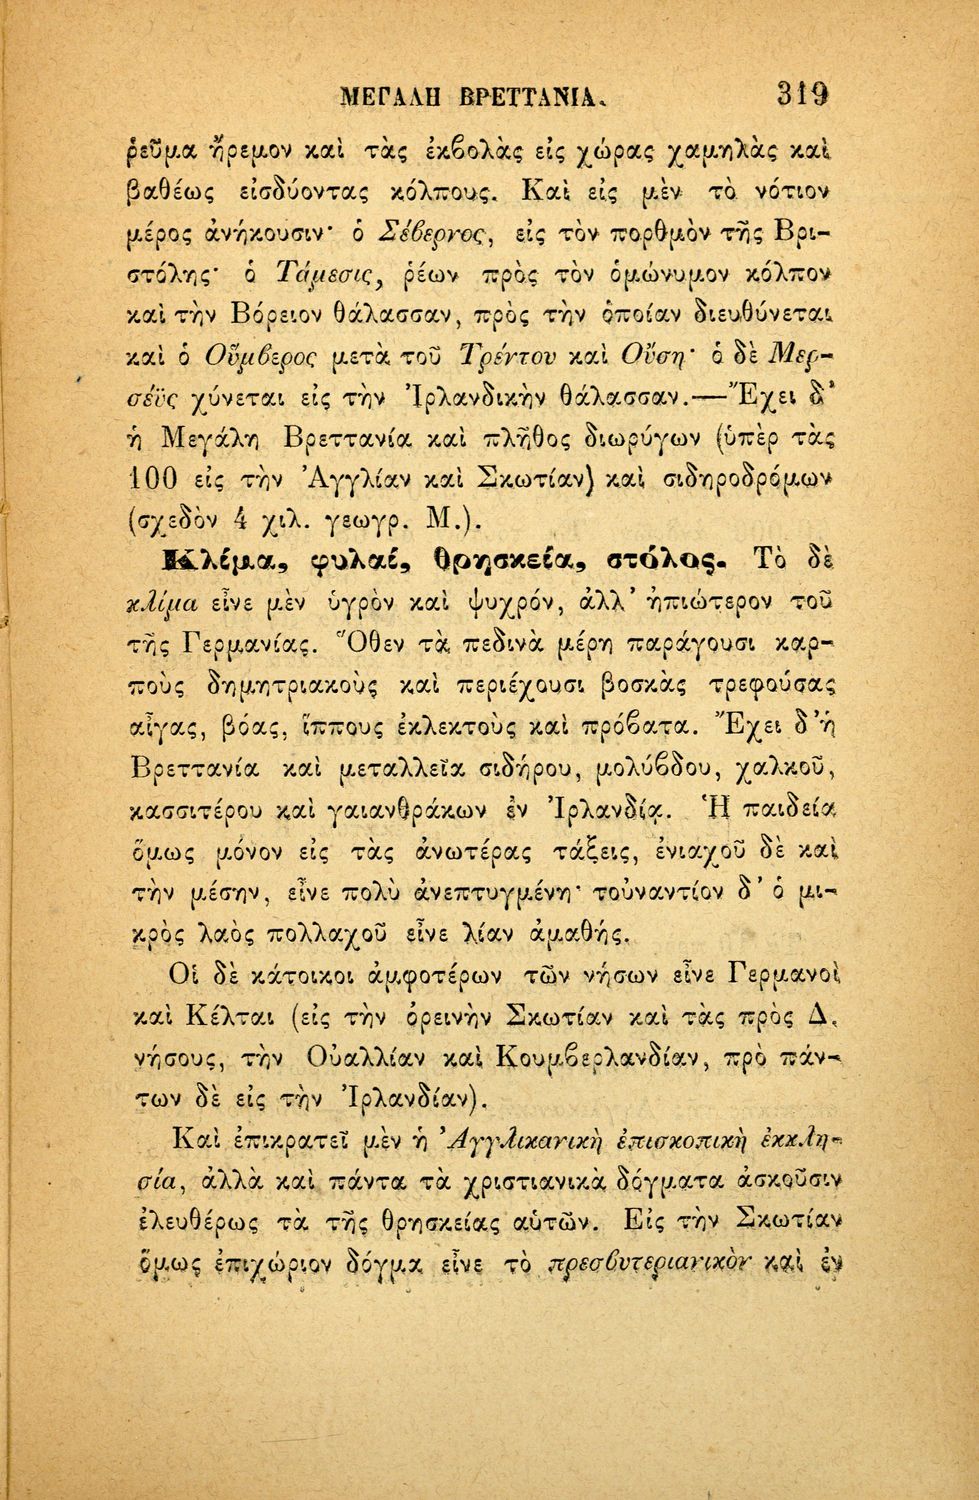 ΜΕΓΑΛΗ ΒΡΕΤΤΑΝΙΑ. 319
ῥεῦμα ἤρεμον καὶ τὰς ἐκβολὰς εἰς χώρας χαμηλὰς καὶ
βαθέως εἰσδύοντας κόλπους. Καὶ εἰς μὲν τὸ νότιον
μέρος ἀνήκουσιν· ὁ Σέβερνος, εἰς τὸν πορθμὸν τῆς Βρι-
στόλης· ὁ Τάμεσις, ῥέων πρὸς τὸν ὁμώνυμον κόλπον
καὶ τὴν Βόρειον θάλασσαν, πρὸς τὴν ὁποίαν διευθύνεται
καὶ ὁ Οὖμβερος μετὰ τοῦ Τρέντου καὶ Οὔση· ὁ δὲ Μερ-
σέϋς χύνεται εἰς τὴν Ἰρλανδικὴν θάλασσαν.—Ἔχει δ'
ἡ Μεγάλη Βρεττανία καὶ πλῆθος διωρύγων (ὑπὲρ τὰς
100 εἰς τὴν Ἀγγλίαν καὶ Σκωτίαν) καὶ σιδηροδρόμων
(σχεδὸν 4 χιλ. γεωγρ. Μ.).
Κλίμα, φυλαί, θρησκεία, στόλος. Τὸ δὲ
κλίμα εἶνε μὲν ὑγρὸν καὶ ψυχρόν, ἀλλ' ἠπιώτερον τοῦ
τῆς Γερμανίας. Ὅθεν τὰ πεδινὰ μέρη παράγουσι καρ-
ποὺς δημητριακοὺς καὶ περιέχουσι βοσκὰς τρεφούσας
αἶγας, βόας, ἵππους ἐκλεκτοὺς καὶ πρόβατα. Ἔχει δ'ἡ
Βρεττανία καὶ μεταλλεῖα σιδήρου, μολύβδου, χαλκοῦ,
κασσιτέρου καὶ γαιανθράκων ἐν Ἰρλανδίᾳ. Ἡ παιδεία
ὅμως μόνον εἰς τὰς ἀνωτέρας τάξεις, ἐνιαχοῦ δὲ καὶ
τὴν μέσην, εἶνε πολὺ ἀνεπτυγμένη· τοὐναντίον δ' ὁ μι-
κρὸς λαὸς πολλαχοῦ εἶνε λίαν ἀμαθής.
Οἱ δὲ κάτοικοι ἀμφοτέρων τῶν νήσων εἶνε Γερμανοὶ
καὶ Κέλται (εἰς τὴν ὀρεινὴν Σκωτίαν καὶ τὰς πρὸς Δ.
νήσους, τὴν Οὐαλλίαν καὶ Κουμβερλανδίαν, πρὸ πάν-
των δὲ εἰς τὴν Ἰρλανδίαν).
Καὶ ἐπικρατεῖ μὲν ἡ Ἀγγλικανικὴ ἐπισκοπικὴ ἐκκλη-
σία, ἀλλὰ καὶ πάντα τὰ χριστιανικὰ δόγματα ἀσκοῦσιν
ἐλευθέρως τὰ τῆς θρησκείας αὑτῶν. Εἰς τὴν Σκωτίαν
ὅμως ἐπιχώριον δόγμα εἶνε τὸ πρεσβυτεριανικὸν καὶ ἐν